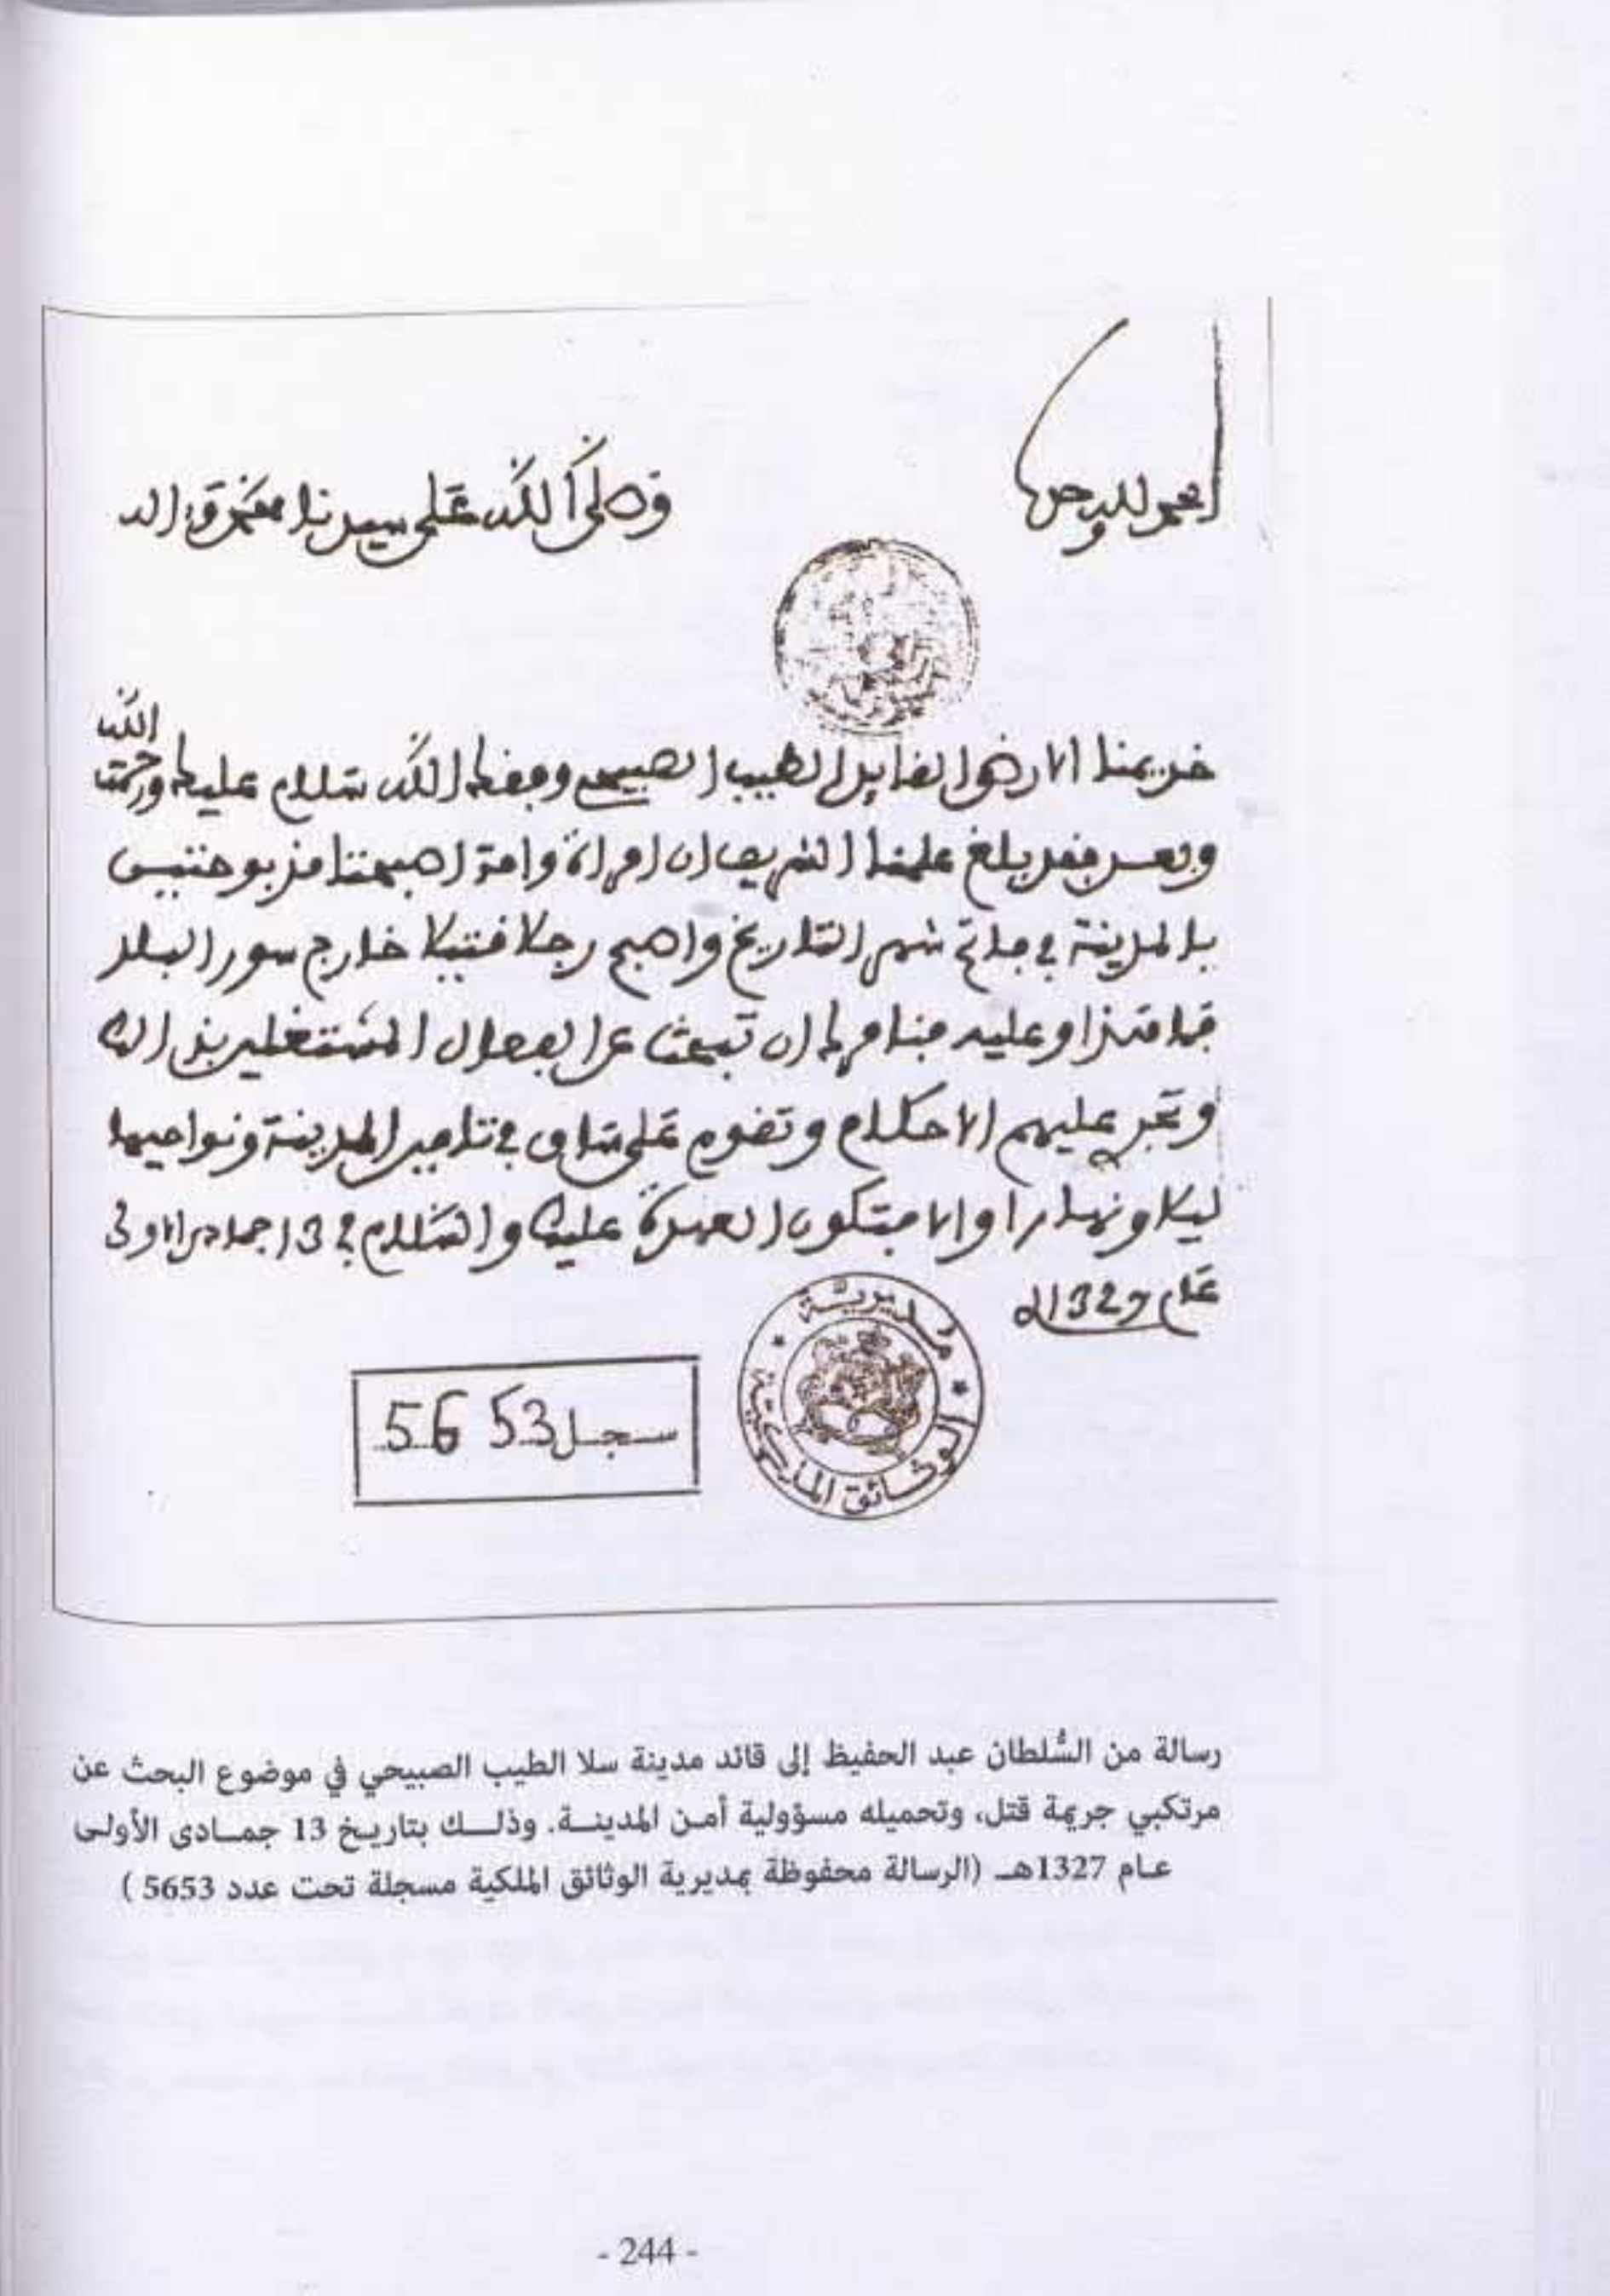 الحمد لله وحده
وصلى الله على سيدنا محمد وآله
خديمنا الارضى القايد الطيب الصبيحي وفقك الله سلام عليك ورحمت الله
وبعد فقد بلغ علمنا الشريف ان امراة وامة اصبحتا
بالمدينة في فاتح شهر التاريخ واصبح رجلا قتيلا خارج سور البلد
وعليه فنامرك ان تبحث عن المشتغلين بذالك
وتجر عليهم الاحكام وتقوم على ساق في تامين المدينة ونواحيها
ليلا ونهارا والا فتكون العهدة عليك والسلام في 13 جمادى الاولى
عام 1327ه
مديرية الوثائق الملكية
سجل 53 56
رسالة من السُّلطان عبد الحفيظ إلى قائد مدينة سلا الطيب الصبيحي في موضوع البحث عن
مرتكبي جريمة قتل، وتحميله مسؤولية أمن المدينة. وذلك بتاريخ 13 جمادى الأولى
عام 1327هـ (الرسالة محفوظة بمديرية الوثائق الملكية مسجلة تحت عدد 5653 )
- 244 -